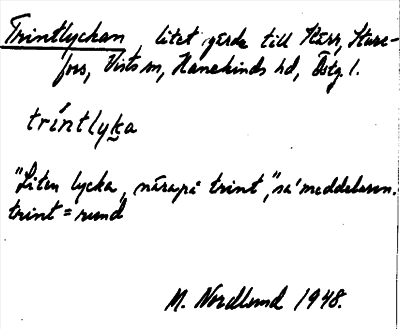 Trintlyckan litet gärde till Stärr, Sture-
fors, Vists sn, Hanekinds hd, Östg l.
tríntlyka
"Liten lycka, närapå trint," sa' meddelaren.
trint = rund
M. Nordlund 1948.